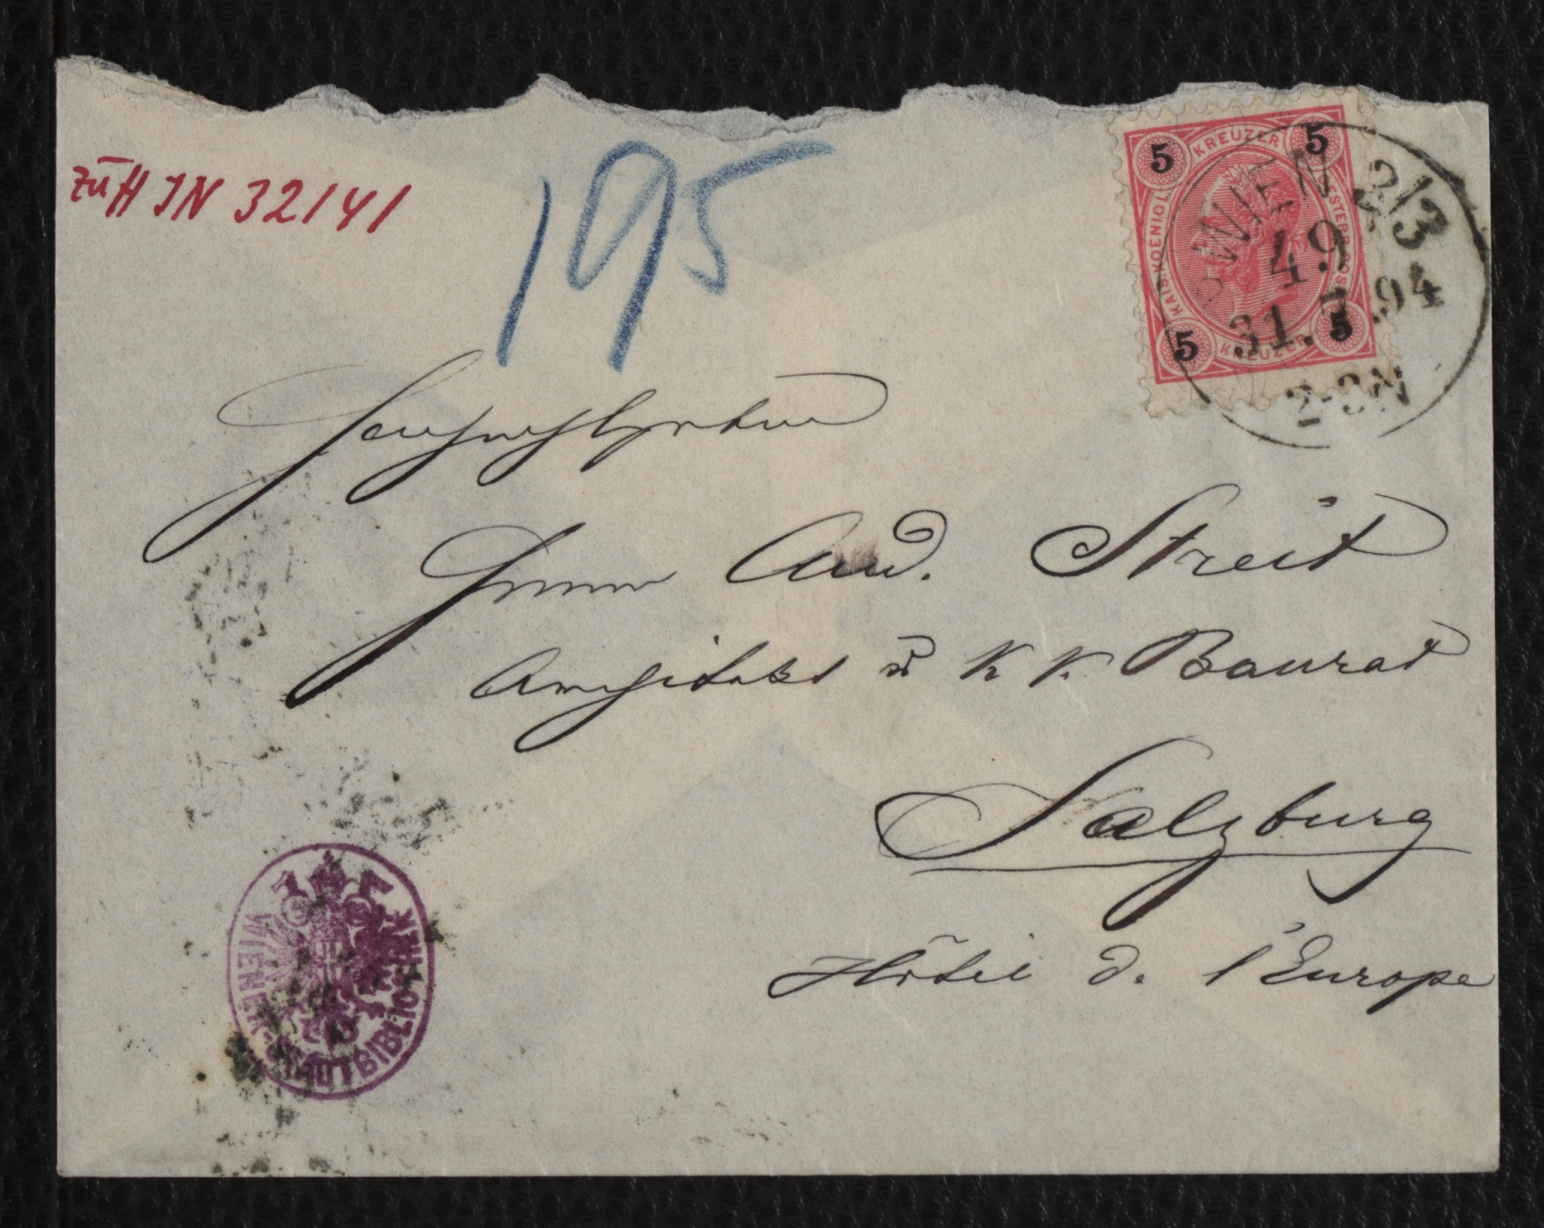 zu H IN 32141
195
5 KREUZER 5
KAIS. KOENIGL. OESTERR. POST
5 KREUZER 5
WIEN 3/3
49
31.7.94
2-3N
Hochwohlgeboren
Herrn And. Streit
Architekt u k. k. Baurat
Salzburg
Hôtel d. l'Europe
WIENER STADTBIBLIOTHEK